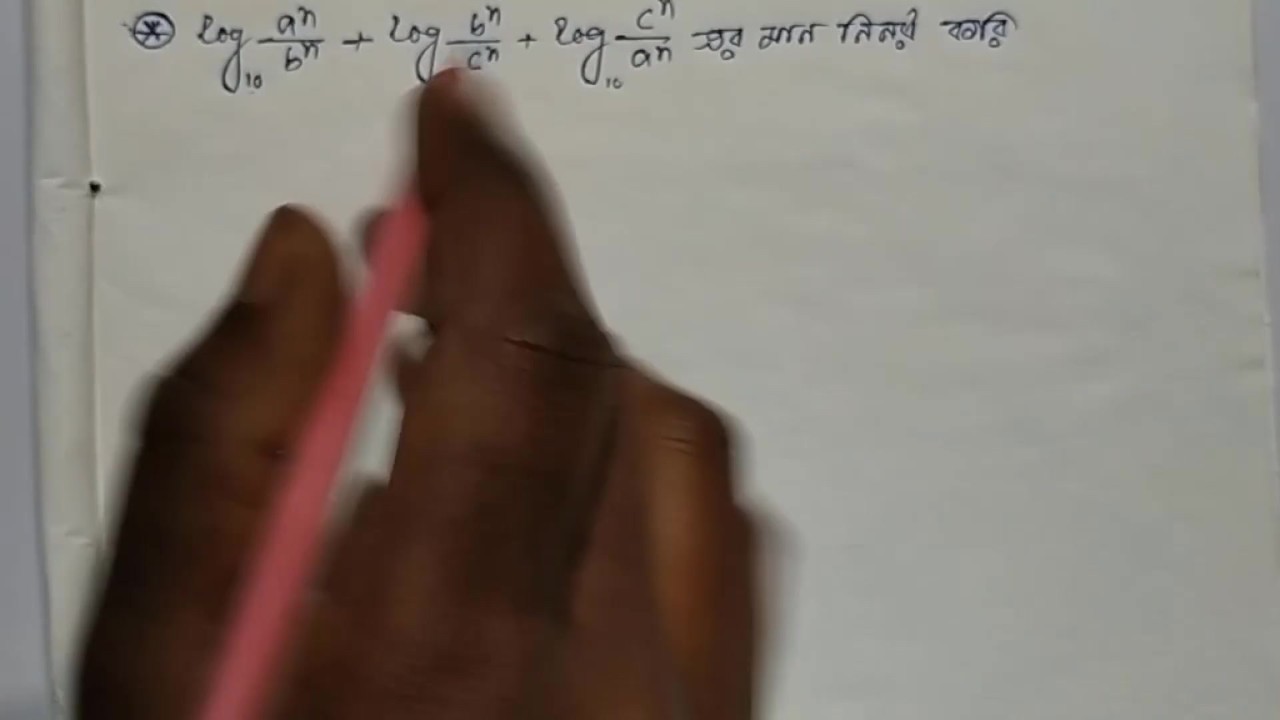 ⊛ log₁₀ aⁿ/bⁿ + log bⁿ/cⁿ + log₁₀ cⁿ/aⁿ এর মান নির্ণয় করি